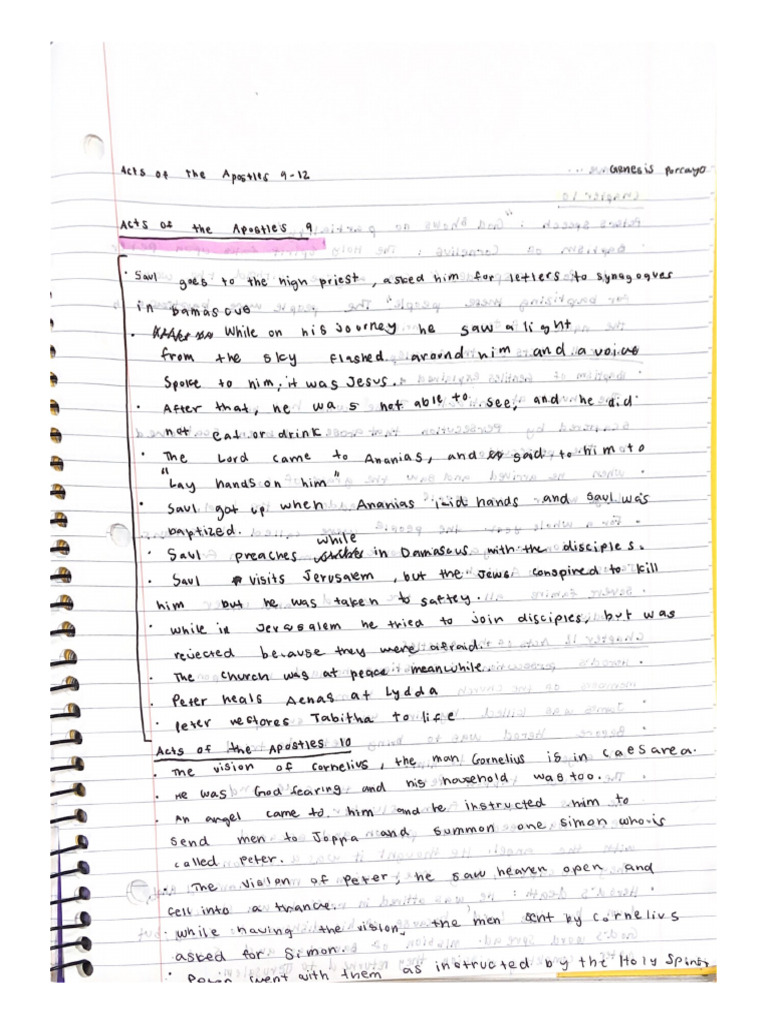 Acts of the Apostles 9-12
Genesis Porcayo
Acts of the Apostles 9
· Saul goes to the high priest, asked him for letters to synagogues
in Damascus
· While on his journey he saw a light
from the sky flashed around him and a voice
spoke to him, it was Jesus.
· After that, he was not able to see, and he did
not eat or drink
· The Lord came to Ananias, and said to him to
"Lay hands on him"
· Saul got up when Ananias laid hands and Saul was
baptized.
while
· Saul preaches in Damascus with the disciples.
· Saul visits Jerusalem, but the Jews conspired to kill
him but he was taken to saftey.
· while in Jerusalem he tried to join disciples, but was
rejected because they were afraid.
· The church was at peace meanwhile.
· Peter heals Aenas at Lydda
· Peter restores Tabitha to life
Acts of the Apostles 10
· The vision of Cornelius, the man Cornelius is in Caesarea.
· He was God fearing and his household was too.
· An angel came to him and he instructed him to
send men to Joppa and summon one Simon who is
called Peter.
· The vision of Peter, he saw heaven open and
fell into a trance.
· while having the vision, the men sent by Cornelius
asked for Simon.
· Peter went with them as instructed by the Holy Spirit